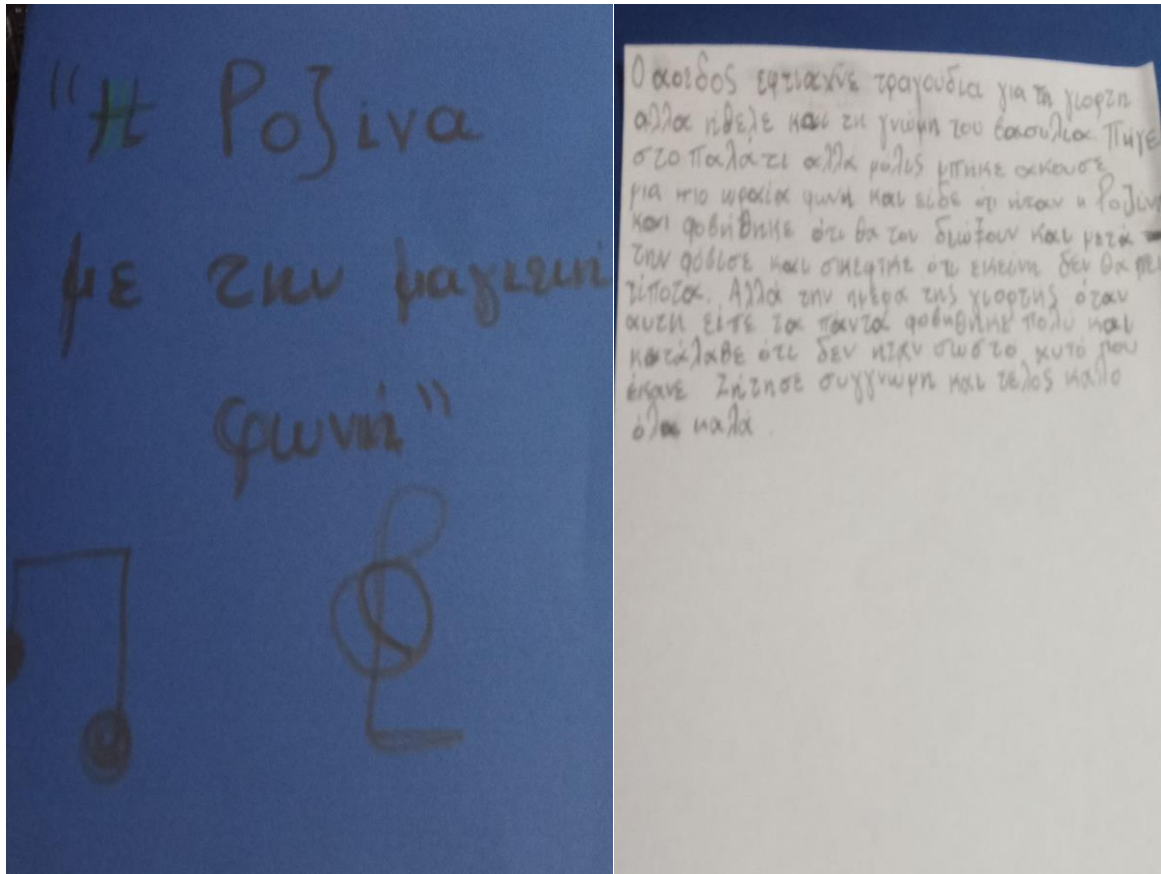 "Η Ροζίνα
με την μαγική
φωνή"
Ο αοιδος εφτιαχνε τραγουδια για τη γιορτη
αλλα ηθελε και τη γνώμη του βασυλια. Πήγε
στο παλάτι αλλά μόλις μπηκε ακουσε
μια πιο ωραία φωνη και είδε ότι ηταν η Ροζίνα
και φοβήθηκε ότι θα τον διώξουν και μετά
την φόβισε και σκεφτηκε ότι εκεινη δεν θα πει
τίποτα. Αλλά την ημέρα της γιορτης όταν
αυτη είπε τα πάντα φοβηθηκε πολυ και
κατάλαβε ότι δεν ηταν σωστό αυτό που
έκανε. Ζήτησε συγγνωμη και τελος καλο
όλα καλά.